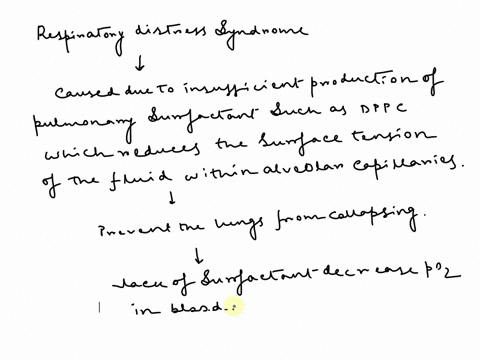 Respiratory distress Syndrome
↓
Caused due to insufficient production of
pulmonary Surfactant Such as DPPC
which reduces the Surface tension
of the fluid within alveolar capillaries.
↓
Prevent the lungs from collapsing.
↓
lack of Surfactant decrease pO2
in blood.